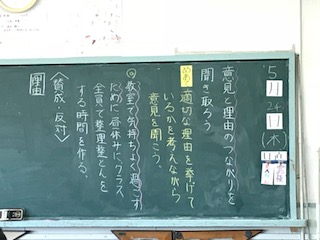 5月24日(木)
意見と理由のつながりを
聞き取ろう
めあて 適切な理由を挙げて
いるかを考えながら
意見を聞こう。
教室で気持ちよく過ごす
ために昼休みに、クラス
全員で整理整とんを
する時間を作る。
〈賛成・反対〉
理由